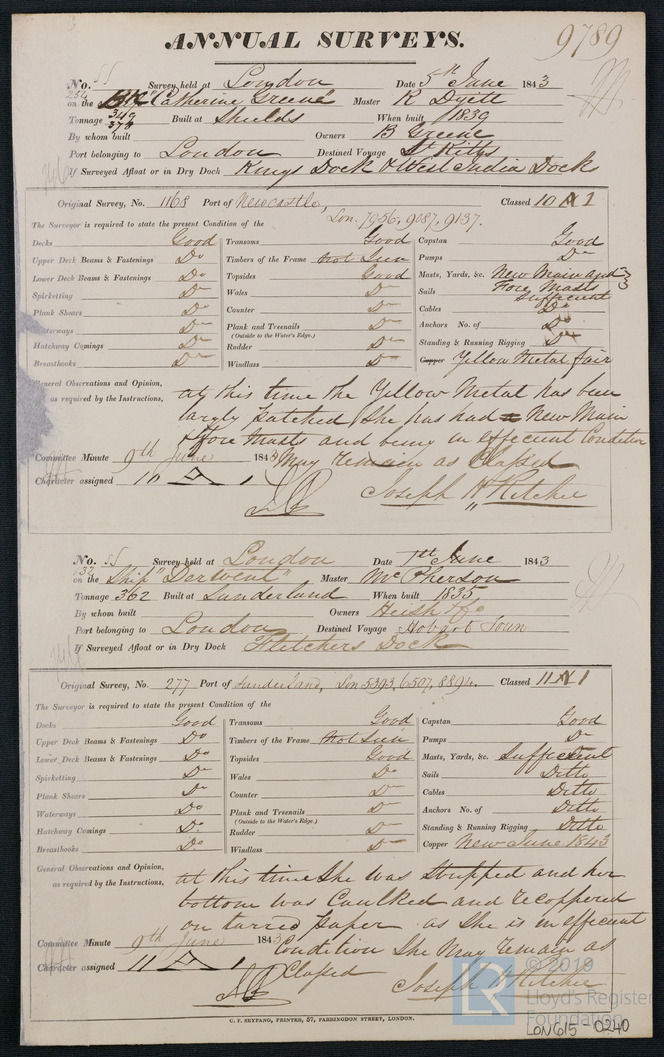 ANNUAL SURVEYS. 9789
No. 55 Survey held at London Date 5th June 1843
on the Bk "Catherine Greene" Master R Dyett
Tonnage 349 374 Built at Shields When built 1839
By whom built Owners B Greene
Port belonging to London Destined Voyage St Kitts
If Surveyed Afloat or in Dry Dock Kings Dock & West India Docks
Original Survey, No. 1168 Port of Newcastle, Lon. 7956, 9087, 9137. Classed 10 A 1
The Surveyor is required to state the present Condition of the
Decks Good Transoms Good Capstan Good
Upper Deck Beams & Fastenings Do Timbers of the Frame not seen Pumps Do
Lower Deck Beams & Fastenings Do Topsides Good Masts, Yards, &c. New Main and Fore Masts
Spirketting Do Wales Do Sails Sufficient
Plank Shears Do Counter Do Cables Do
Waterways Do Plank and Treenails Do Anchors No. of Do
(Outside to the Water's Edge.)
Hatchway Comings Do Rudder Do Standing & Running Rigging Do
Breasthooks Do Windlass Do Copper Yellow Metal fair
General Observations and Opinion, at this time the Yellow Metal has been
as required by the Instructions, largly patched, She has had New Main
& Fore Masts and being in effecient Condition
Committee Minute 9th June 1843 May remain as Classed
Character assigned 10 A 1 Joseph H Ritchie
No. 55 Survey held at London Date 1st June 1843
132
on the Ship "Derwent" Master McPherson
Tonnage 362 Built at Sunderland When built 1835
By whom built Owners
Port belonging to London Destined Voyage Hobart Town
If Surveyed Afloat or in Dry Dock Fletchers Dock
Original Survey, No. 277 Port of Sunderland, Lon 5393, 6507, 8894. Classed 11 A 1
The Surveyor is required to state the present Condition of the
Decks Good Transoms Good Capstan Good
Upper Deck Beams & Fastenings Do Timbers of the Frame not seen Pumps Do
Lower Deck Beams & Fastenings Do Topsides Good Masts, Yards, &c. Suffecient
Spirketting Do Wales Do Sails Ditto
Plank Shears Do Counter Do Cables Ditto
Waterways Do Plank and Treenails Do Anchors No. of Ditto
(Outside to the Water's Edge.)
Hatchway Comings Do Rudder Do Standing & Running Rigging Ditto
Breasthooks Do Windlass Do Copper New June 1843
General Observations and Opinion, at this time She was Stripped and her
as required by the Instructions, bottom was Caulked and recoppered
on tarred paper as she is in effecient
Committee Minute 9th June 1843 Condition She May remain as
Character assigned 11 A 1 Classed Joseph H Ritchie
C. F. SEYFANG, PRINTER, 57, FARRINGDON STREET, LONDON.
LR © 2019
Lloyd's Register
Foundation
LON615-0240